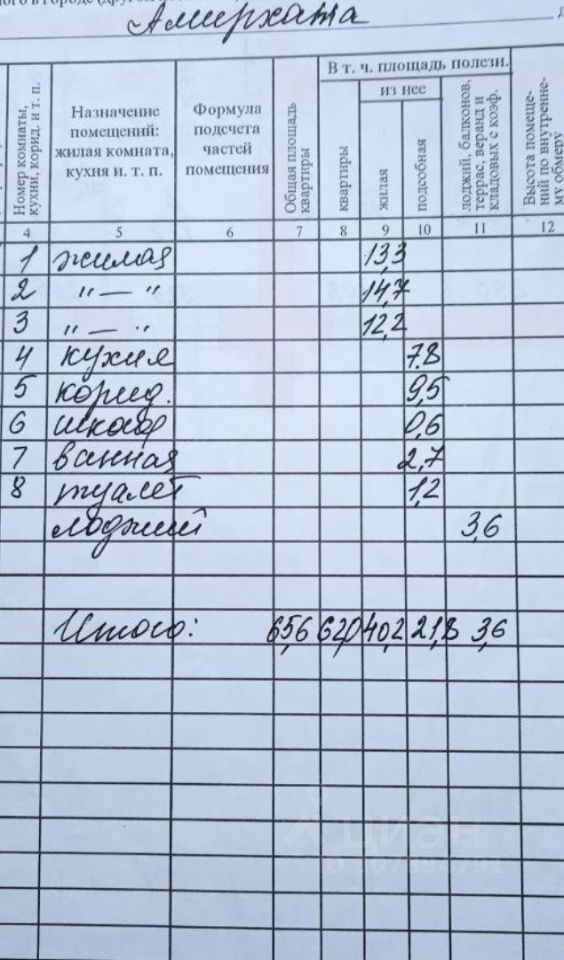 Амирхана
В т. ч. площадь полезн.
из нее
Номер комнаты, кухни, корид. и т. п.
Назначение помещений: жилая комната, кухня и. т. п.
Формула подсчета частей помещения
Общая площадь квартиры
квартиры
жилая
подсобная
лоджий, балконов, террас, веранд и кладовых с коэф.
Высота помеще-ний по внутренне-му обмеру
4 5 6 7 8 9 10 11 12
1 жилая 13,3
2 "—" 14,7
3 "—" 12,2
4 кухня 7.8
5 корид. 9,5
6 шкаф 0,6
7 ванная 2,7
8 туалет 1,2
лоджий 3,6
Итого: 65,6 62,0 40,2 21,8 3,6
циан